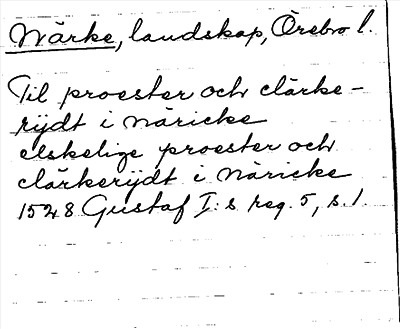 Närke, landskap, Örebro l.
Til proester och clärke-
rijdt i näricke
elskelige proester och
clärkerijdt i Näricke
1528 Gustaf I:s reg. 5, s. 1.